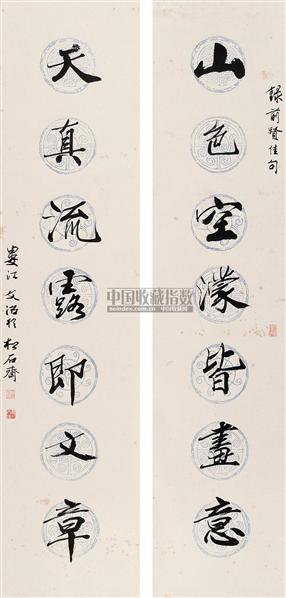 錄前賢佳句
山色空濛皆畫意
天真流露即文章
婁江文治於松石齋
中国收藏指数